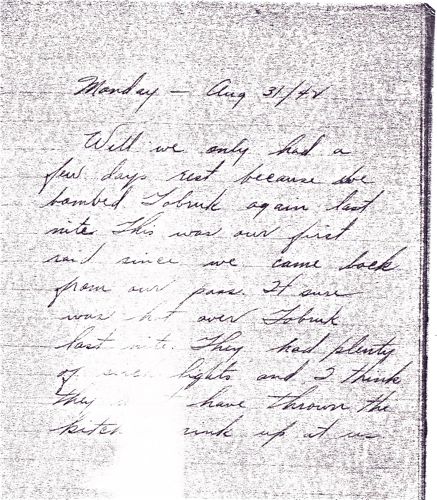 Monday — Aug 31/42
Well we only had a
few days rest because we
bombed Tobruk again last
nite This was our first
raid since we came back
from our pass. It sure
was hot over Tobruk
last nite. They had plenty
of lights and I think
they have thrown the
up at us